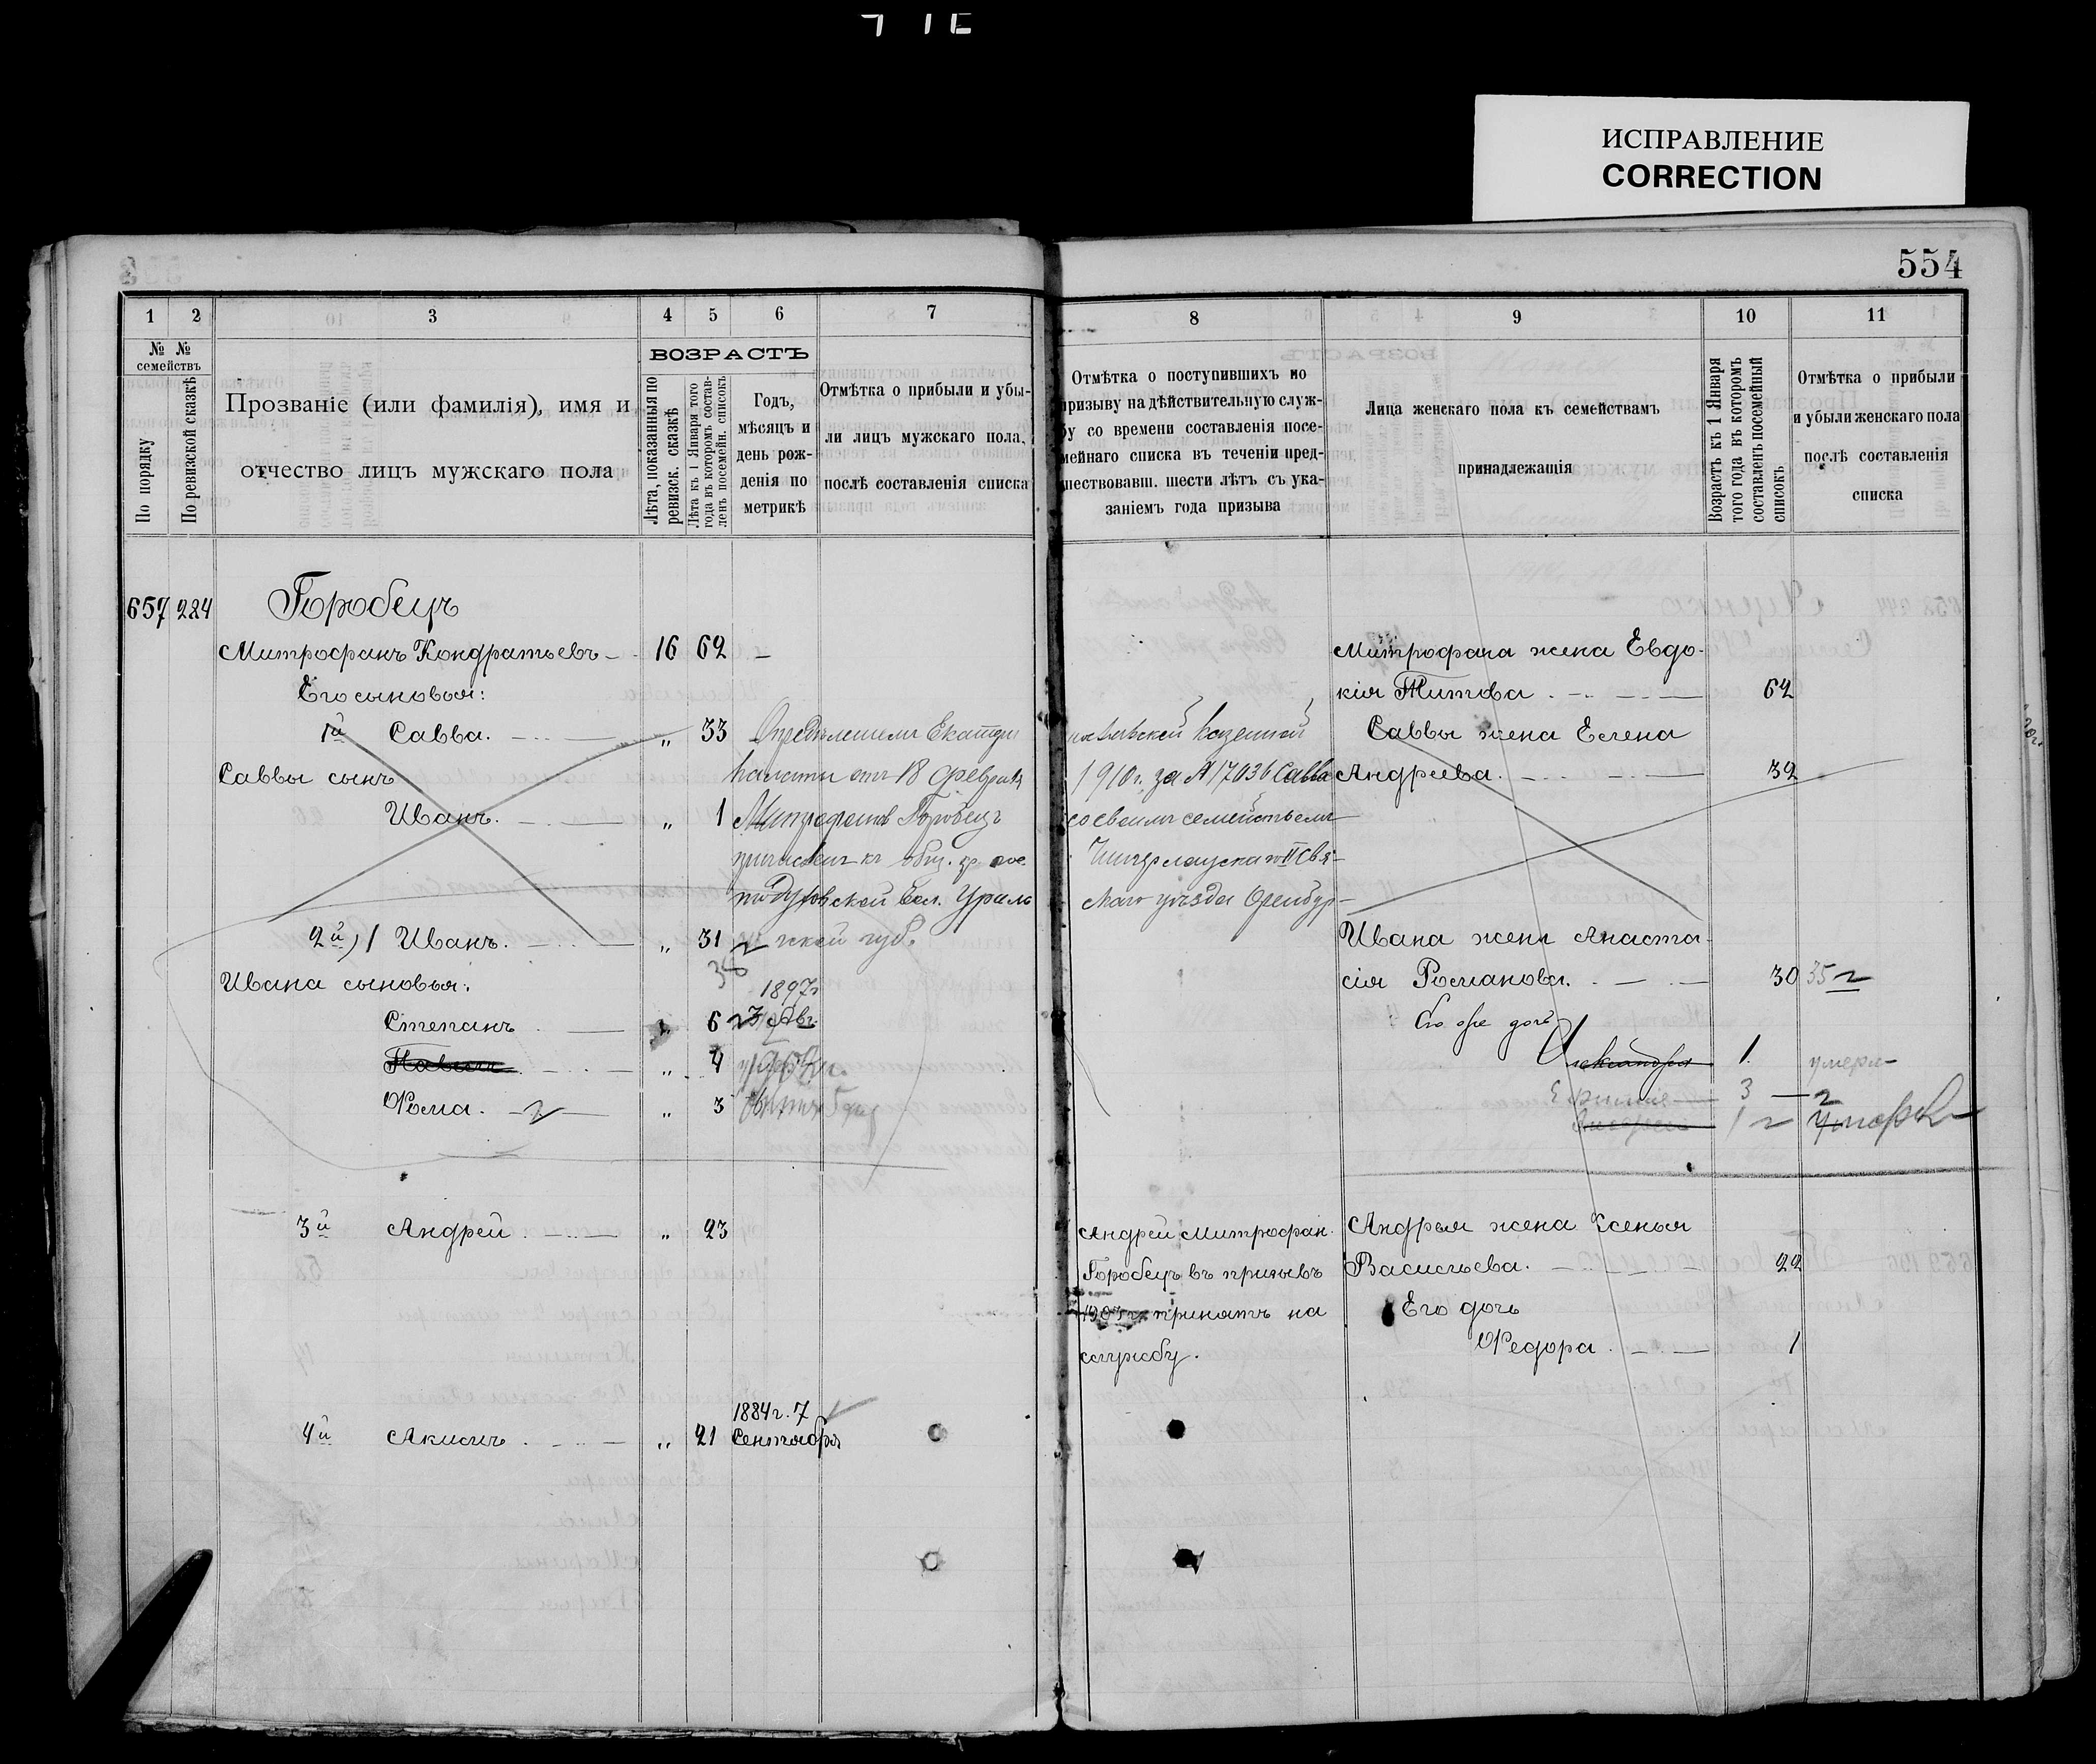 ИСПРАВЛЕНИЕ
CORRECTION
554
1 2 3 4 5 6 7
№ № семействъ
По порядку
По ревизской сказкѣ
Прозваніе (или фамилія), имя и
отчество лицъ мужскаго пола
ВОЗРАСТЪ
Лѣта, показанныя по
ревизск. сказкѣ
Лѣта къ 1 Января того
года въ которомъ состав-
ленъ посемейн. списокъ
Годъ,
мѣсяцъ и
день рож-
денія по
метрикѣ
Отмѣтка о прибыли и убы-
ли лицъ мужскаго пола,
послѣ составленія списка
657 284 Горобецъ
Митрофанъ Кондратьевъ 16 62
Его сыновья:
1й Савва. „ 33 Екатери
Саввы сынъ палаты отъ 18 февраля
Иванъ. „ 1 Митрофановъ Горобецъ
2й) 1 Иванъ. „ 31 губ.
38
Ивана сыновья: 1897г
Степанъ „ 6 23
„ 4
Фома. „ 3
3й Андрей. „ 23
1884 г. 7
4й Акимъ. „ 21 Сентября
8 9 10 11
Отмѣтка о поступившихъ по
призыву на дѣйствительную служ-
бу со времени составленія посе-
мейнаго списка въ теченіи пред-
шествовавш. шести лѣтъ съ ука-
заніемъ года призыва
Лица женскаго пола къ семействамъ
принадлежащія
Возрастъ къ 1 Января
того года въ которомъ
составленъ посемейный
списокъ
Отмѣтка о прибыли
и убыли женскаго пола
послѣ составленія
списка
Митрофана жена Евдо-
кія Титова 62
казенной Саввы жена Елена
1910г. за № 17036 Савва Андреева. 32
со своимъ семействомъ
уѣзда Оренбур-
Ивана жена Анаста-
сія Романова. 30 35
Его же дочь
Александра 1. умерла
3
1 умерла
Андрей Митрофан. Андрея жена Ксенья
Горобецъ въ призывъ Васильева. 22
принятъ на Его дочь
службу. Федора 1